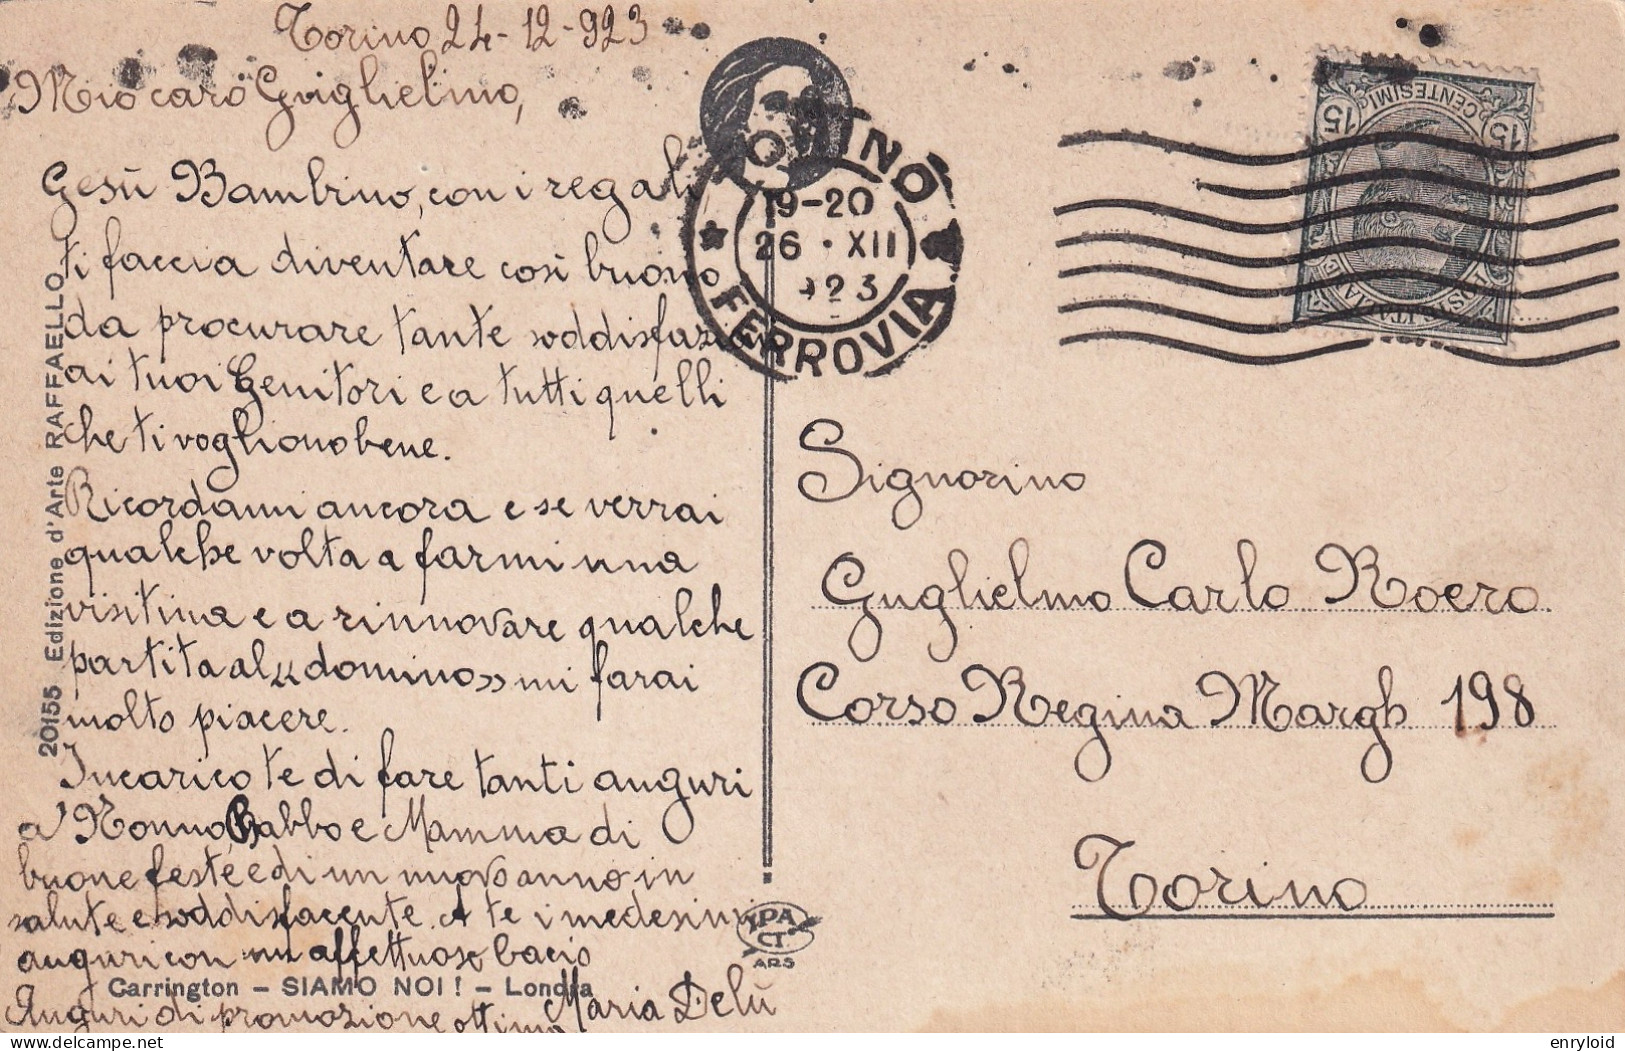 Torino 24-12-923
Mio caro Guiglielmo,
Gesù Bambino, con i regali
ti faccia diventare così buono
da procurare tante soddisfazioni
ai tuoi Genitori e a tutti quelli
che ti vogliono bene.
Ricordami ancora e se verrai
qualche volta a farmi una
visitina e a rinnovare qualche
partita al « domino » mi farai
molto piacere.
Incarico te di fare tanti auguri
a' Nonno, Babbo e Mamma di
buone feste e di un nuovo anno in
salute e soddisfacente. A te i medesimi
auguri con un affettuoso bacio
Maria Delù
Auguri di promozione ottima
20155 Edizione d'Arte RAFFAELLO
Carrington - SIAMO NOI! - Londra
PACT
ARS
TORINO
19-20
26 · XII
923
FERROVIA
15 CENTESIMI 15
POSTE ITALIANE
Signorino
Guglielmo Carlo Roero
Corso Regina Margh 198
Torino
enryloid
delcampe.net